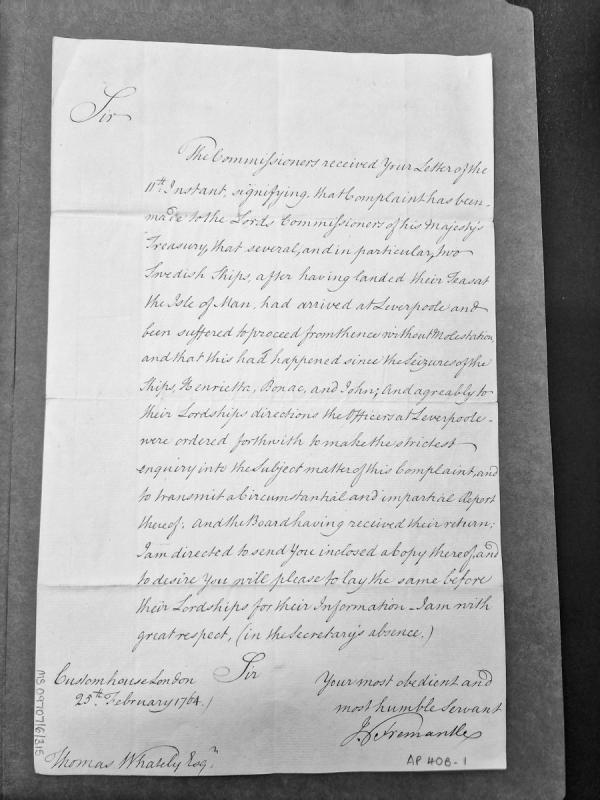 Sir
The Commissioners received Your Letter of the
11th. Instant, signifying, that Complaint has been
made to the Lords Commissioners of his Majesty's
Treasury, that several, and in particular, two
Swedish Ships, after having landed their Teas at
the Isle of Man, had arrived at Leverpoole and
been suffered to proceed from thence without Molestation,
and that this had happened since the Seizures of the
Ships, Henrietta, Bonac, and John; And agreably to
their Lordships directions the Officers at Leverpoole
were ordered forthwith to make the strictest
enquiry into the Subject matter of this Complaint, and
to transmit a Circumstantial and impartial Report
thereof: And the Board having received their return;
I am directed to send You inclosed a Copy thereof, and
to desire You will please to lay the same before
their Lordships for their Information - I am with
great respect, (in the Secretary's absence.)
Sir
Customhouse London
25th. February 1764.
Your most obedient and
most humble Servant
Fremantle
Thomas Whately Esqr.
AP 40B-1
MS 09707/6/315